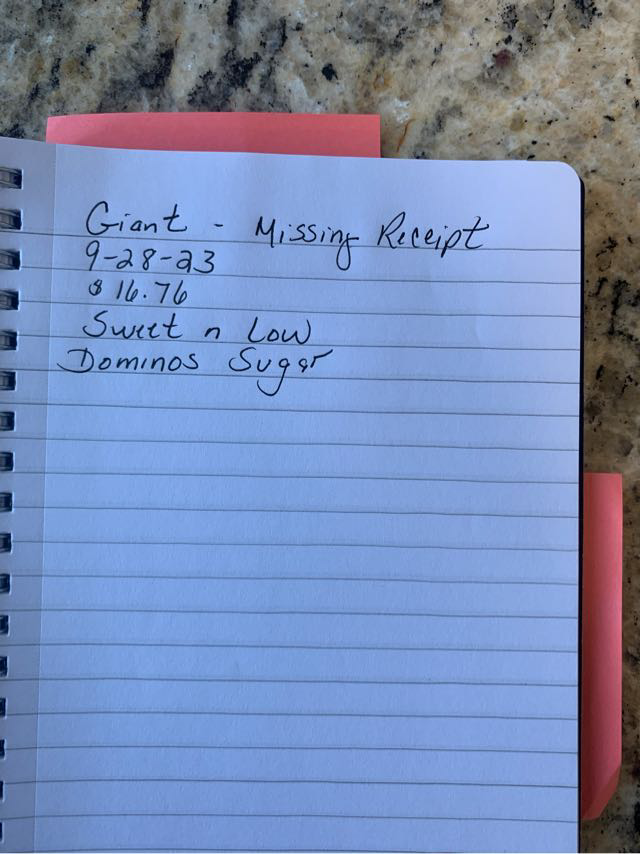 Giant - Missing Receipt
9-28-23
$16.76
Sweet n Low
Dominos Sugar